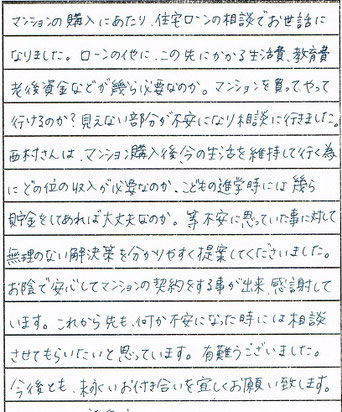 マンションの購入にあたり、住宅ローンの相談でお世話に
なりました。ローンの他に、この先にかかる生活費、教育費
老後資金などが幾ら必要なのか。マンションを買ってやって
行けるのか？見えない部分が不安になり相談に行きました。
西村さんは、マンション購入後、今の生活を維持して行く為
にどの位の収入が必要なのか、こどもの進学時には幾ら
貯金をしてあれば大丈夫なのか。等不安に思っていた事に対して
無理のない解決策を分かりやすく提案してくださいました。
お陰で安心してマンションの契約をする事が出来、感謝して
います。これから先も、何か不安になった時には相談
させてもらいたいと思っています。有難うございました。
今後とも、末永いお付き合いを宜しくお願い致します。